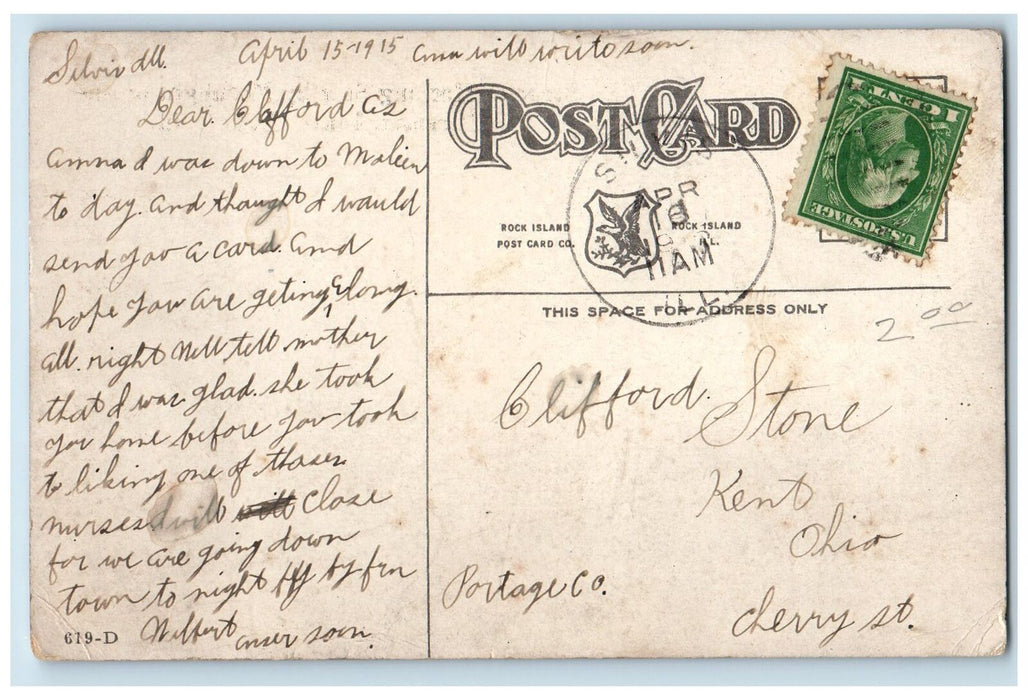 Silvis Ill. April 15-1915 Anna will write soon.
Dear Clifford as
anna I was down to Moleen
to day. and thought I would
send you a card. and
hope you are geting along.
all. right Well tell mother
that I was glad. she took
you home before you took
to liking one of thases
nurses I will will close
for we are going down
town to night by by frn
Wilbert anser soon.
619-D
POST CARD
ROCK ISLAND
POST CARD CO.
ROCK ISLAND
ILL.
APR
11 AM
ILL.
U.S. POSTAGE
1 CENT 1
THIS SPACE FOR ADDRESS ONLY
2 00
Clifford. Stone
Kent
Ohio
Portage Co.
cherry st.